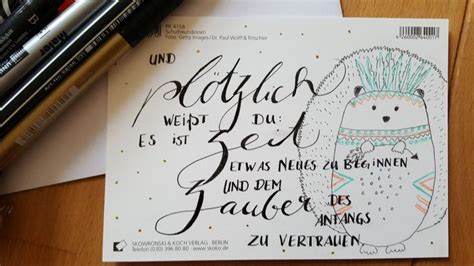 PK 4158
Schulfreundinnen
Foto: Getty Images / Dr. Paul Wolff & Tritschler
UND
plötzlich
WEIßT DU:
ES IST Zeit
ETWAS NEUES ZU BEGINNEN
UND DEM
Zauber DES
ANFANGS
ZU VERTRAUEN
SKOWRONSKI & KOCH VERLAG BERLIN
Telefon (030) 396 80 80 · www.skoko.de